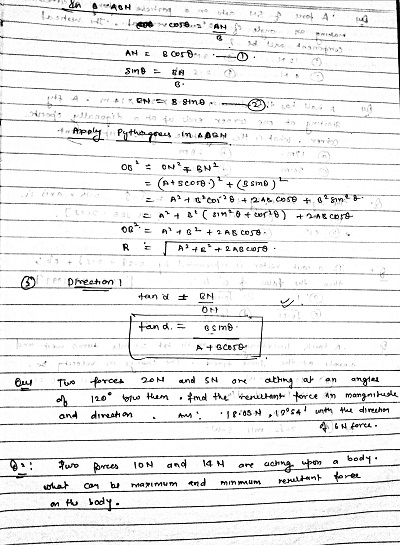 In Δ ABN
cosθ = AN/B
AN = B cosθ — ①
sinθ = BN/B
BN = B sinθ — ②
Apply Pythagoras in Δ OBN
OB² = ON² + BN²
= (A+Bcosθ)² + (Bsinθ)²
= A² + B²cos²θ + 2ABcosθ + B²sin²θ
= A² + B² (sin²θ + cos²θ) + 2ABcosθ
OB² = A² + B² + 2ABcosθ
R = √A² + B² + 2ABcosθ
③ Direction
tan α = BN/ON
tan α = Bsinθ/A + Bcosθ
Que Two forces 20N and 5N are acting at an angles
of 120° b/w them. find the resultant force in mangnitude
and direction. Ans: 18.03N, 13°54' with the direction
of 6N force.
Q2: Two forces 10N and 14N are acting upon a body.
what can be maximum and minimum resultant force
on the body.